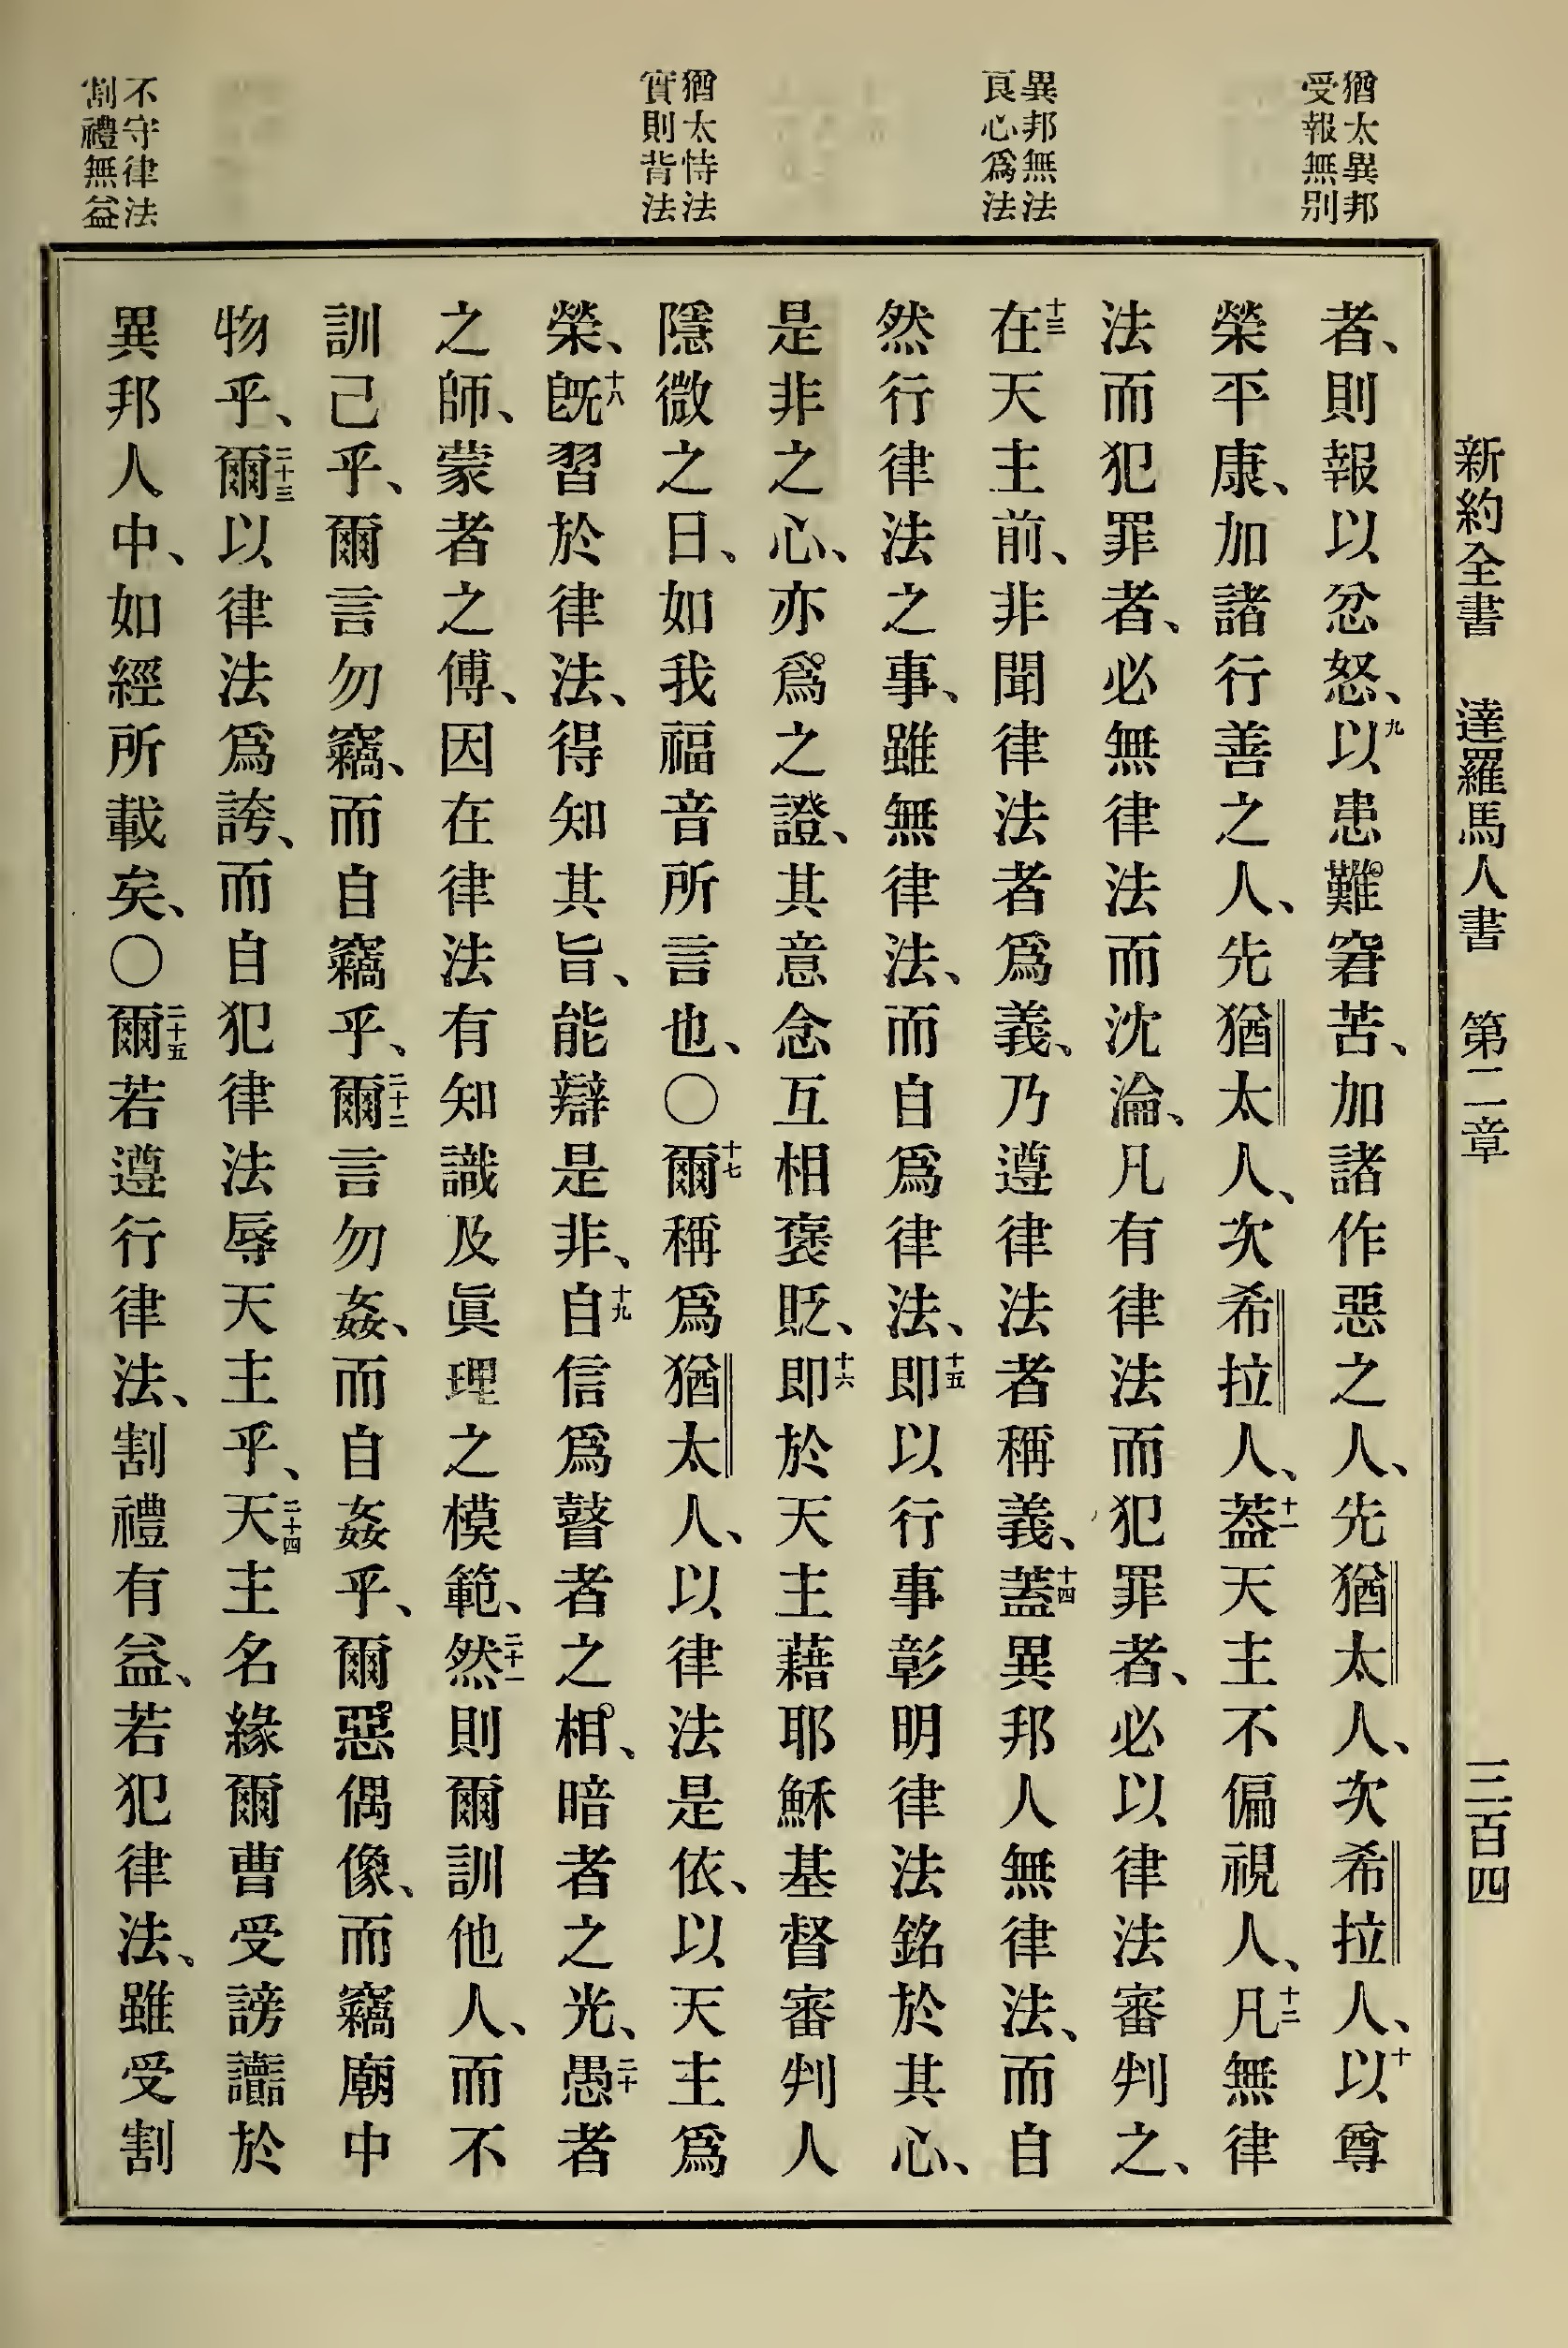 新約全書 達羅馬人書 第二章 三百四
猶太異邦
受報無別
異邦無法
良心爲法
猶太恃法
實則背法
不守律法
割禮無益
者、則報以忿怒、九以患難窘苦、加諸作惡之人、先猶太人、次希拉人、十以尊
榮平康、加諸行善之人、先猶太人、次希拉人、十一蓋天主不偏視人、十二凡無律
法而犯罪者、必無律法而沈淪、凡有律法而犯罪者、必以律法審判之、
十三在天主前、非聞律法者爲義、乃遵律法者稱義、十四蓋異邦人無律法、而自
然行律法之事、雖無律法、而自爲律法、十五即以行事彰明律法銘於其心、
是非之心、亦爲之證、其意念互相褒貶、十六即於天主藉耶穌基督審判人
隱微之日、如我福音所言也、〇十七爾稱爲猶太人、以律法是依、以天主爲
榮、十八旣習於律法、得知其旨、能辯是非、十九自信爲瞽者之相、暗者之光、二十愚者
之師、蒙者之傅、因在律法有知識及眞理之模範、二十一然則爾訓他人、而不
訓己乎、爾言勿竊、而自竊乎、二十二爾言勿姦、而自姦乎、爾惡偶像、而竊廟中
物乎、二十三爾以律法爲誇、而自犯律法辱天主乎、二十四天主名緣爾曹受謗讟於
異邦人中、如經所載矣、〇二十五爾若遵行律法、割禮有益、若犯律法、雖受割